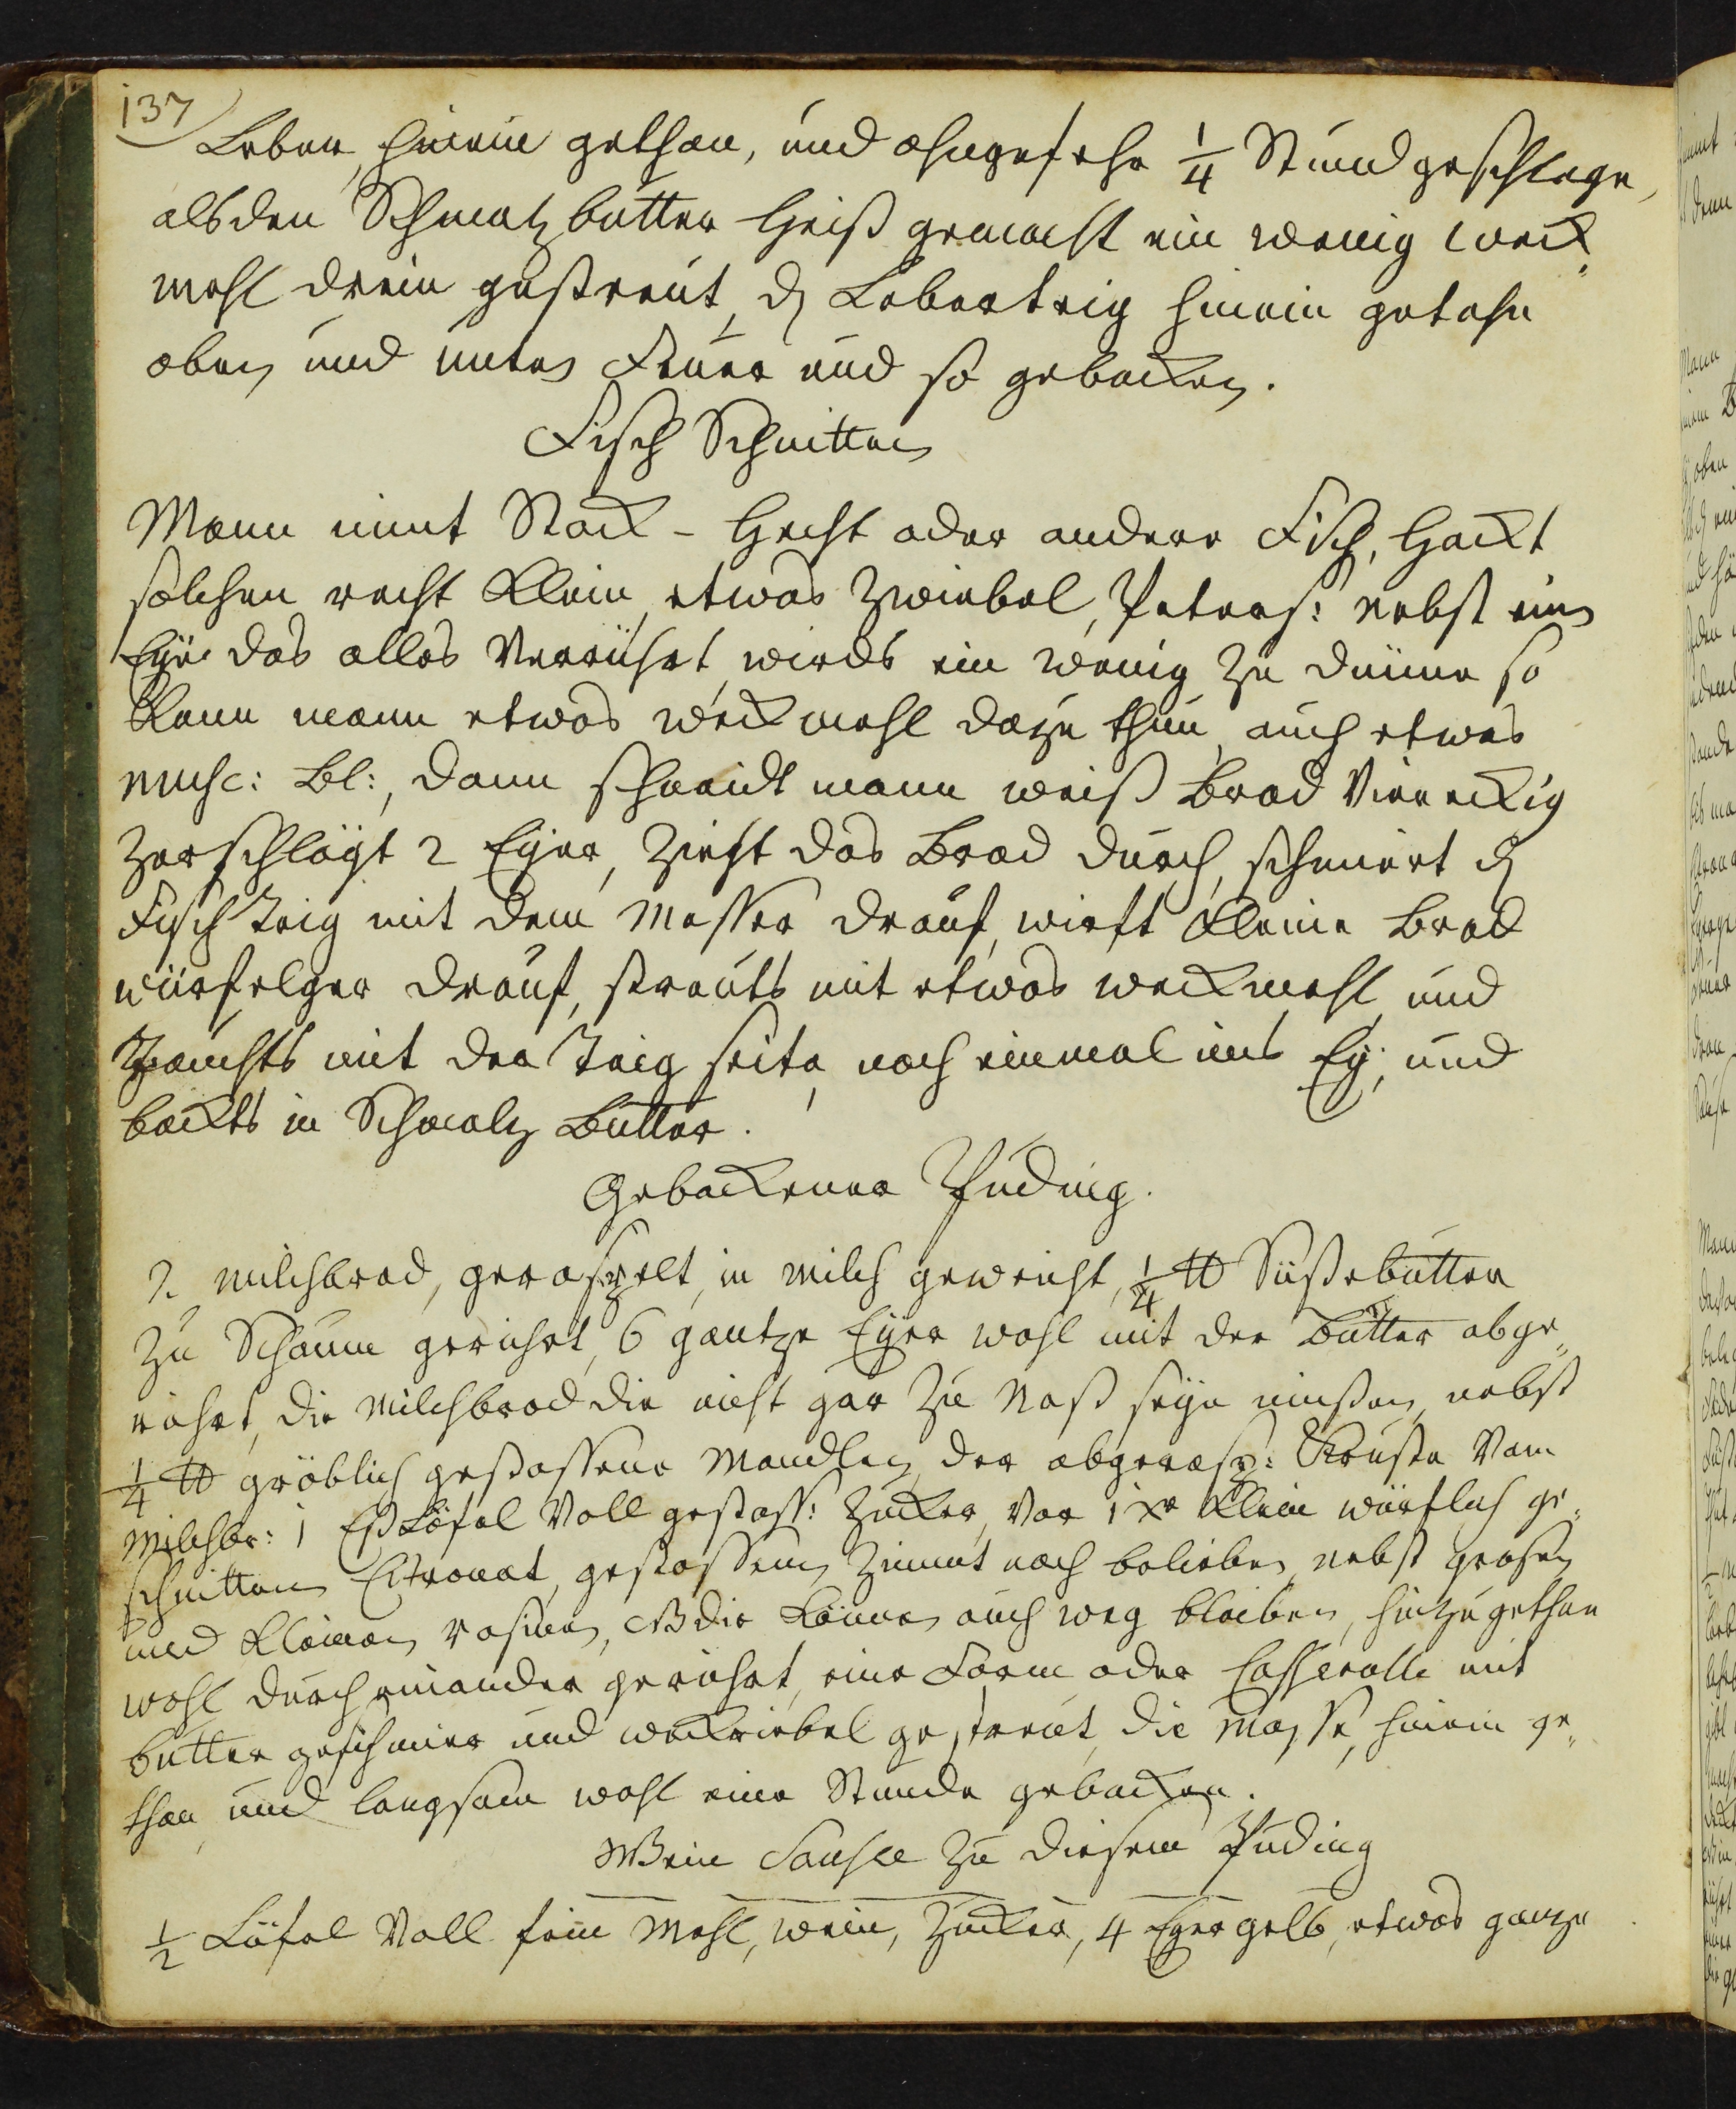 137
Leber, hinein gethan, und ohngefehr 1/4 Stund geschlage,
alsden Schmaltz butter heiß gemacht ein wenig weck
mehl drein gestreut, d Leberteig hinein getahn
oben und unten Feuer und so gebacken.
Fisch Schnitten
Mann nimt Stock - Hecht oder andere Fisch, hackt
solchen recht klein, etwas Zwiebel, Peters: nebst ein
Eye das alles verrührt, wirds ein wenig zu dünne so
kann mann etwas weckmehl dazu thun, auch etwas
musc: Bl:, dann schneidt mann weiß Brod viereckig
zerschlägt 2 Eyer, zieht das Brod durch, schmiert d
Fisch Teig mit dem Messer drauf, wirft kleine Brod
würfelger drauf, streuts mit etwas weckmehl, und
tauchts mit der Teig seite, noch einmal ins Ey, und
backts in Schmaltz Butter.
Gebackener Puding.
2 milchbrod, geraspelt, in milch geweicht, 1/4 ℔ Süßebutter
zu Schaum gerührt, 6 gantze Eyer wohl mit der Butter abge„
rührt, die Milchbrod die nicht gar zu Naß seyn müßen, nebst
1/4 ℔ gröblich gestossene Mandlen, der abgerasp: Kruste vom
Milchbr: 1 Eßlöfel voll gestoss: Zucker, vor 1 Xr klein würflich ge„
schnitten Citronat, gestossenen Zimmt nach belieben, nebst grosen
und kleinen rosinen, NB die könne auch weg bleiben, hinzugethan
wohl durcheinander gerührt, eine Form oder Casserolle mit
butter geschmier und weckriebel gestreut, die Masse, hinein ge„
than, und langsam wohl eine Stunde gebacken.
Wein Sausce zu diesem Puding
1/2 Löfel voll fein Mehl, wein, Zucker, 4 Eyergelb, etwas ganze